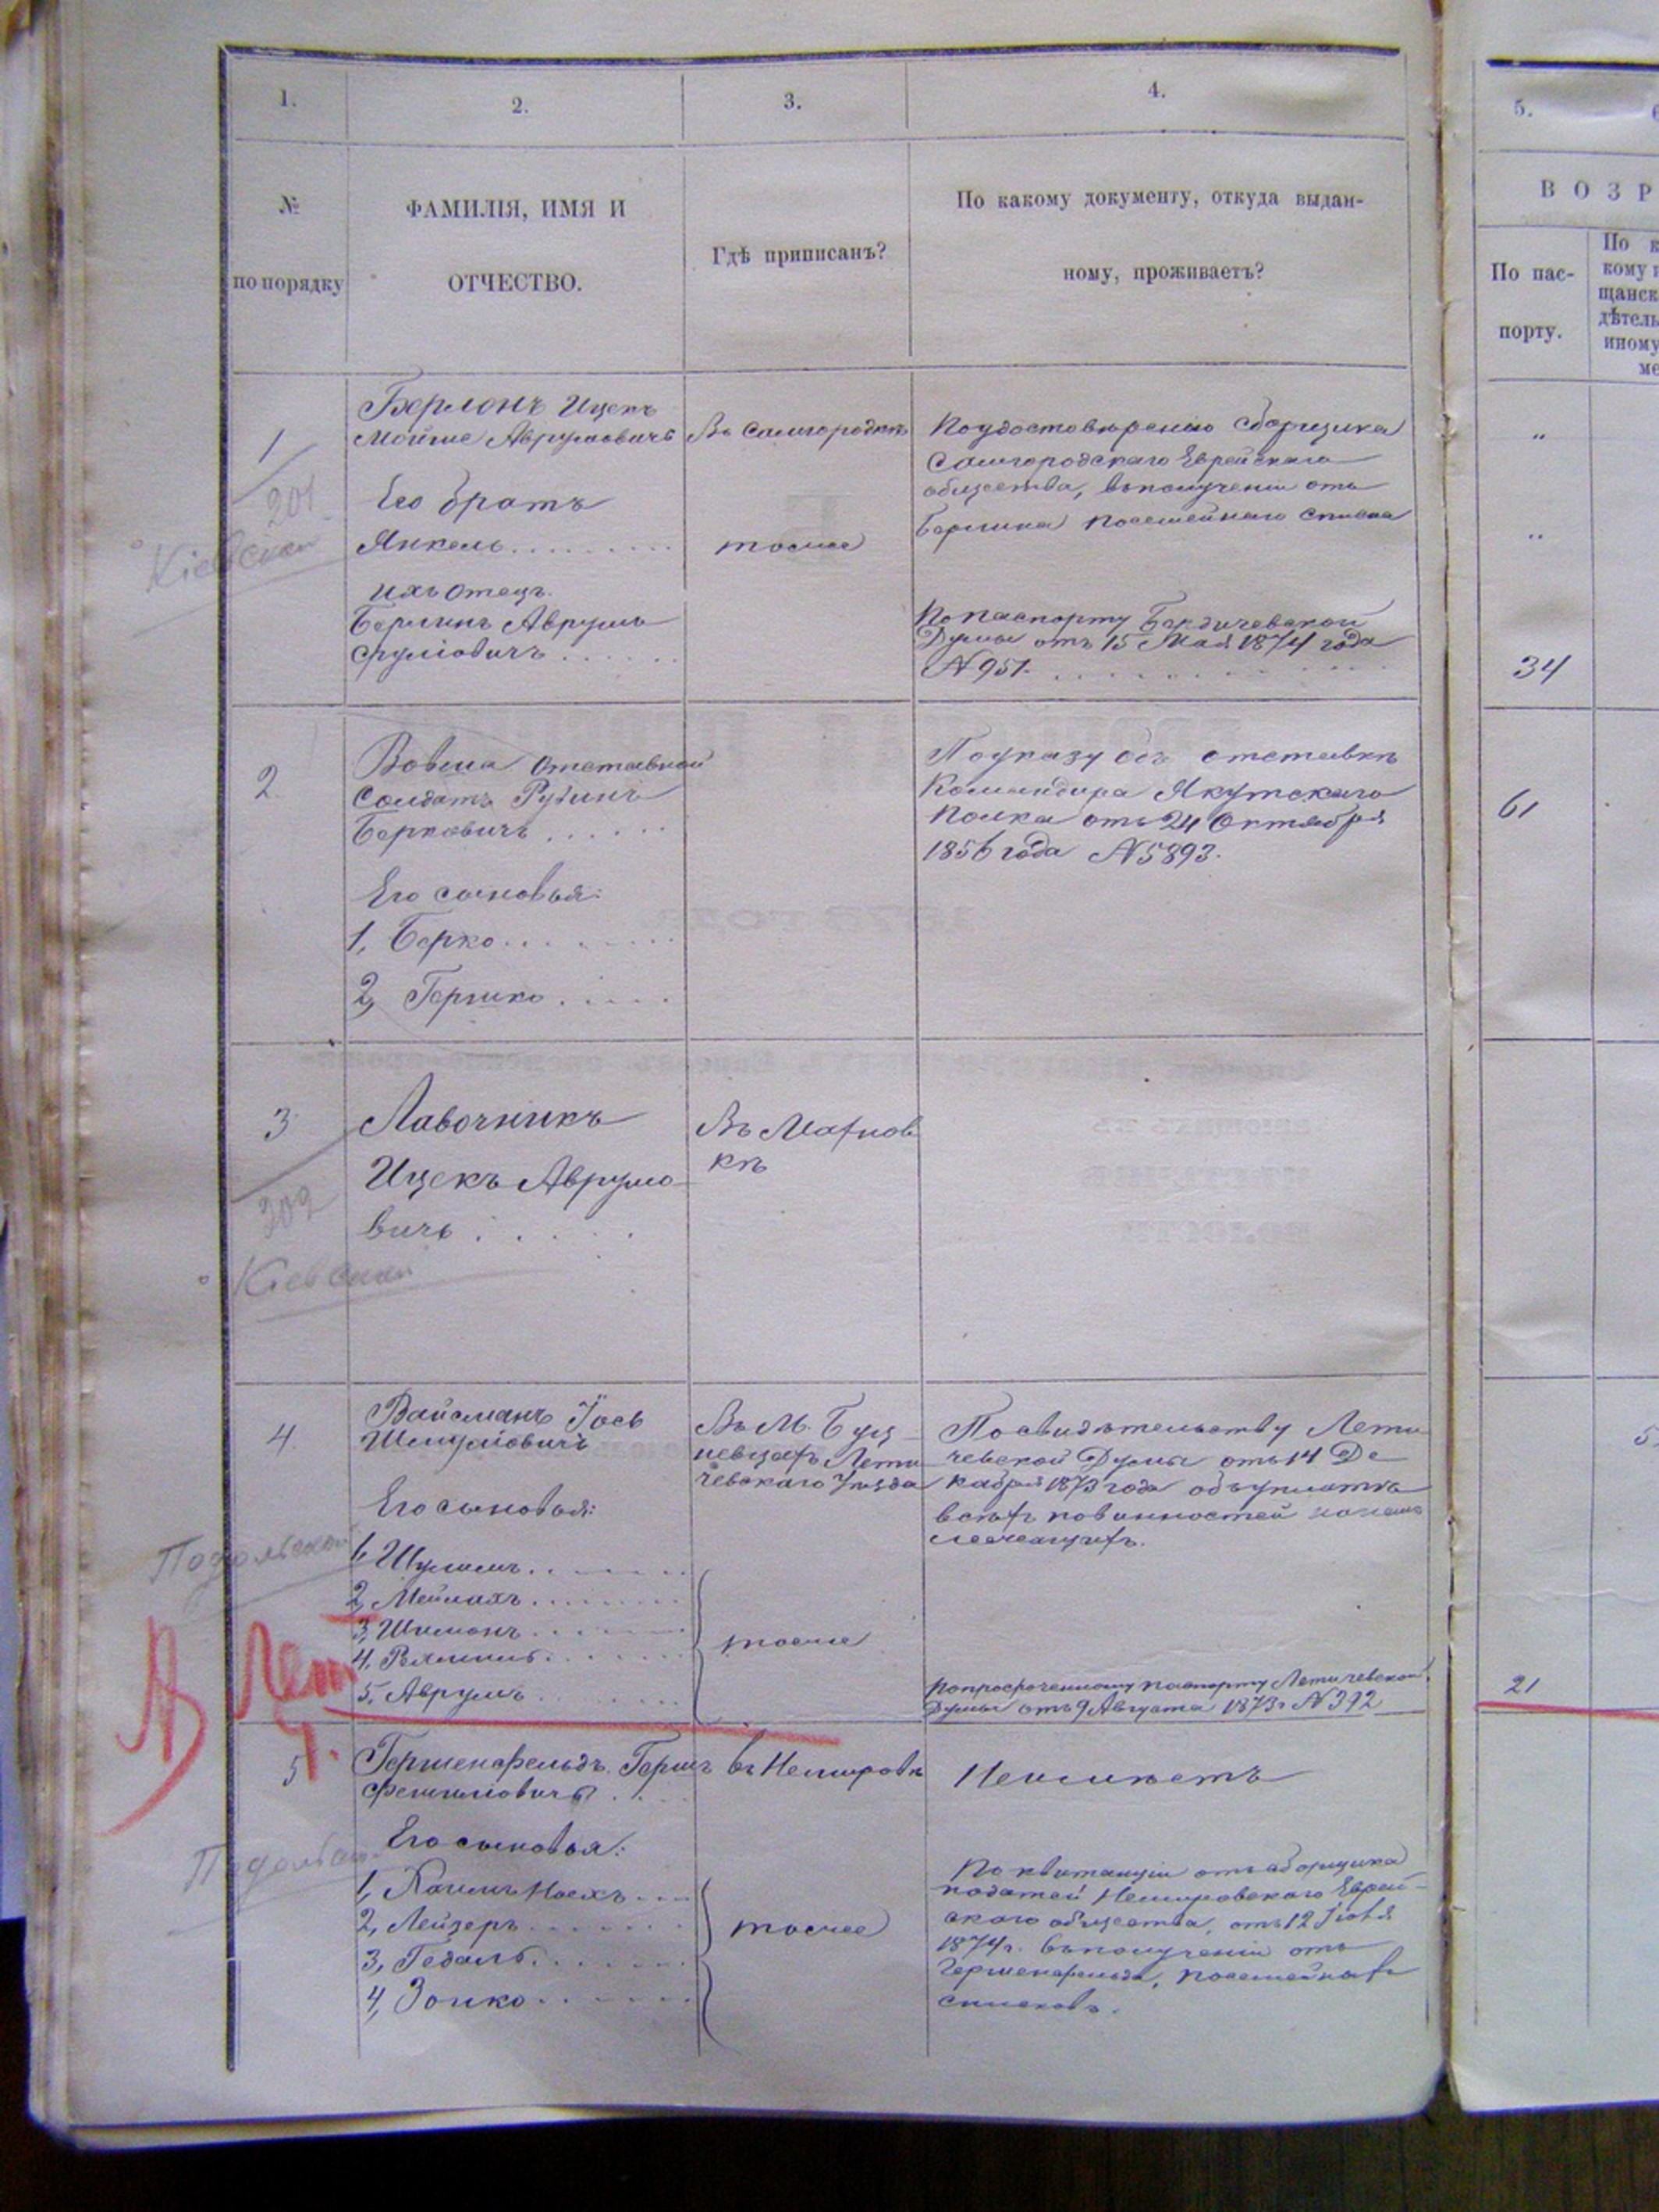 1.
2.
3.
4.
5.
№
по порядку
ФАМИЛІЯ, ИМЯ И
ОТЧЕСТВО.
Гдѣ приписанъ?
По какому документу, откуда выдан-
ному, проживаетъ?
ВОЗР
По пас-
порту.
По
кому
щанск
дѣтель
иному
ме
1
201
Кіевской
Ицекъ
Мойше Аврумовичъ
Его братъ
Янкель
ихъ отецъ
Берлинъ Аврумъ
Сруліовичъ
Въ Самгородкѣ
тоже
По удостовѣренію сборщика
Самгородскаго Еврейскаго
общества, въ полученіи отъ
Берлина посемейнаго списка
По паспорту Бердичевской
Думы отъ 15 Мая 1874 года
№ 951.
"
"
34
2
Отставной
Солдатъ Рувинъ
Берковичъ
Его сыновья:
1, Берко
2, Гершко
По указу объ отставкѣ
Командира Якутскаго
Полка отъ 24 Октября
1856 года № 5893.
61
3
Кіевской
Лавочникъ
Ицекъ Аврумо
вичъ
Въ Махнов
кѣ
4
Подольской
Вайсманъ Іось
Шмуліовичъ
Его сыновья:
1, Шулимъ
2,
3, Шимонъ
4,
5, Аврумъ
Въ М. Буц
невцахъ Лети
чевскаго Уѣзда
тоже
По свидѣтельству Лети
чевской Думы отъ 14 Де
кабря 1873 года объ уплатѣ
всѣхъ повинностей
По просроченному паспорту Летичевской
Думы отъ 9 Августа 1873 г № 392
21
В Лет
5
Подольской
Гершенфельдъ Гершъ
Его сыновья:
1, Хаимъ Ноехъ
2, Лейзеръ
3, Гедаль
4, Зонко
въ Немировѣ
тоже
Неимѣетъ
По квитанціи отъ сборщика
податей Немировскаго Еврей-
скаго общества, отъ 12
1874 г. въ полученіи отъ
Гершенфельда, посемейныхъ
списковъ.